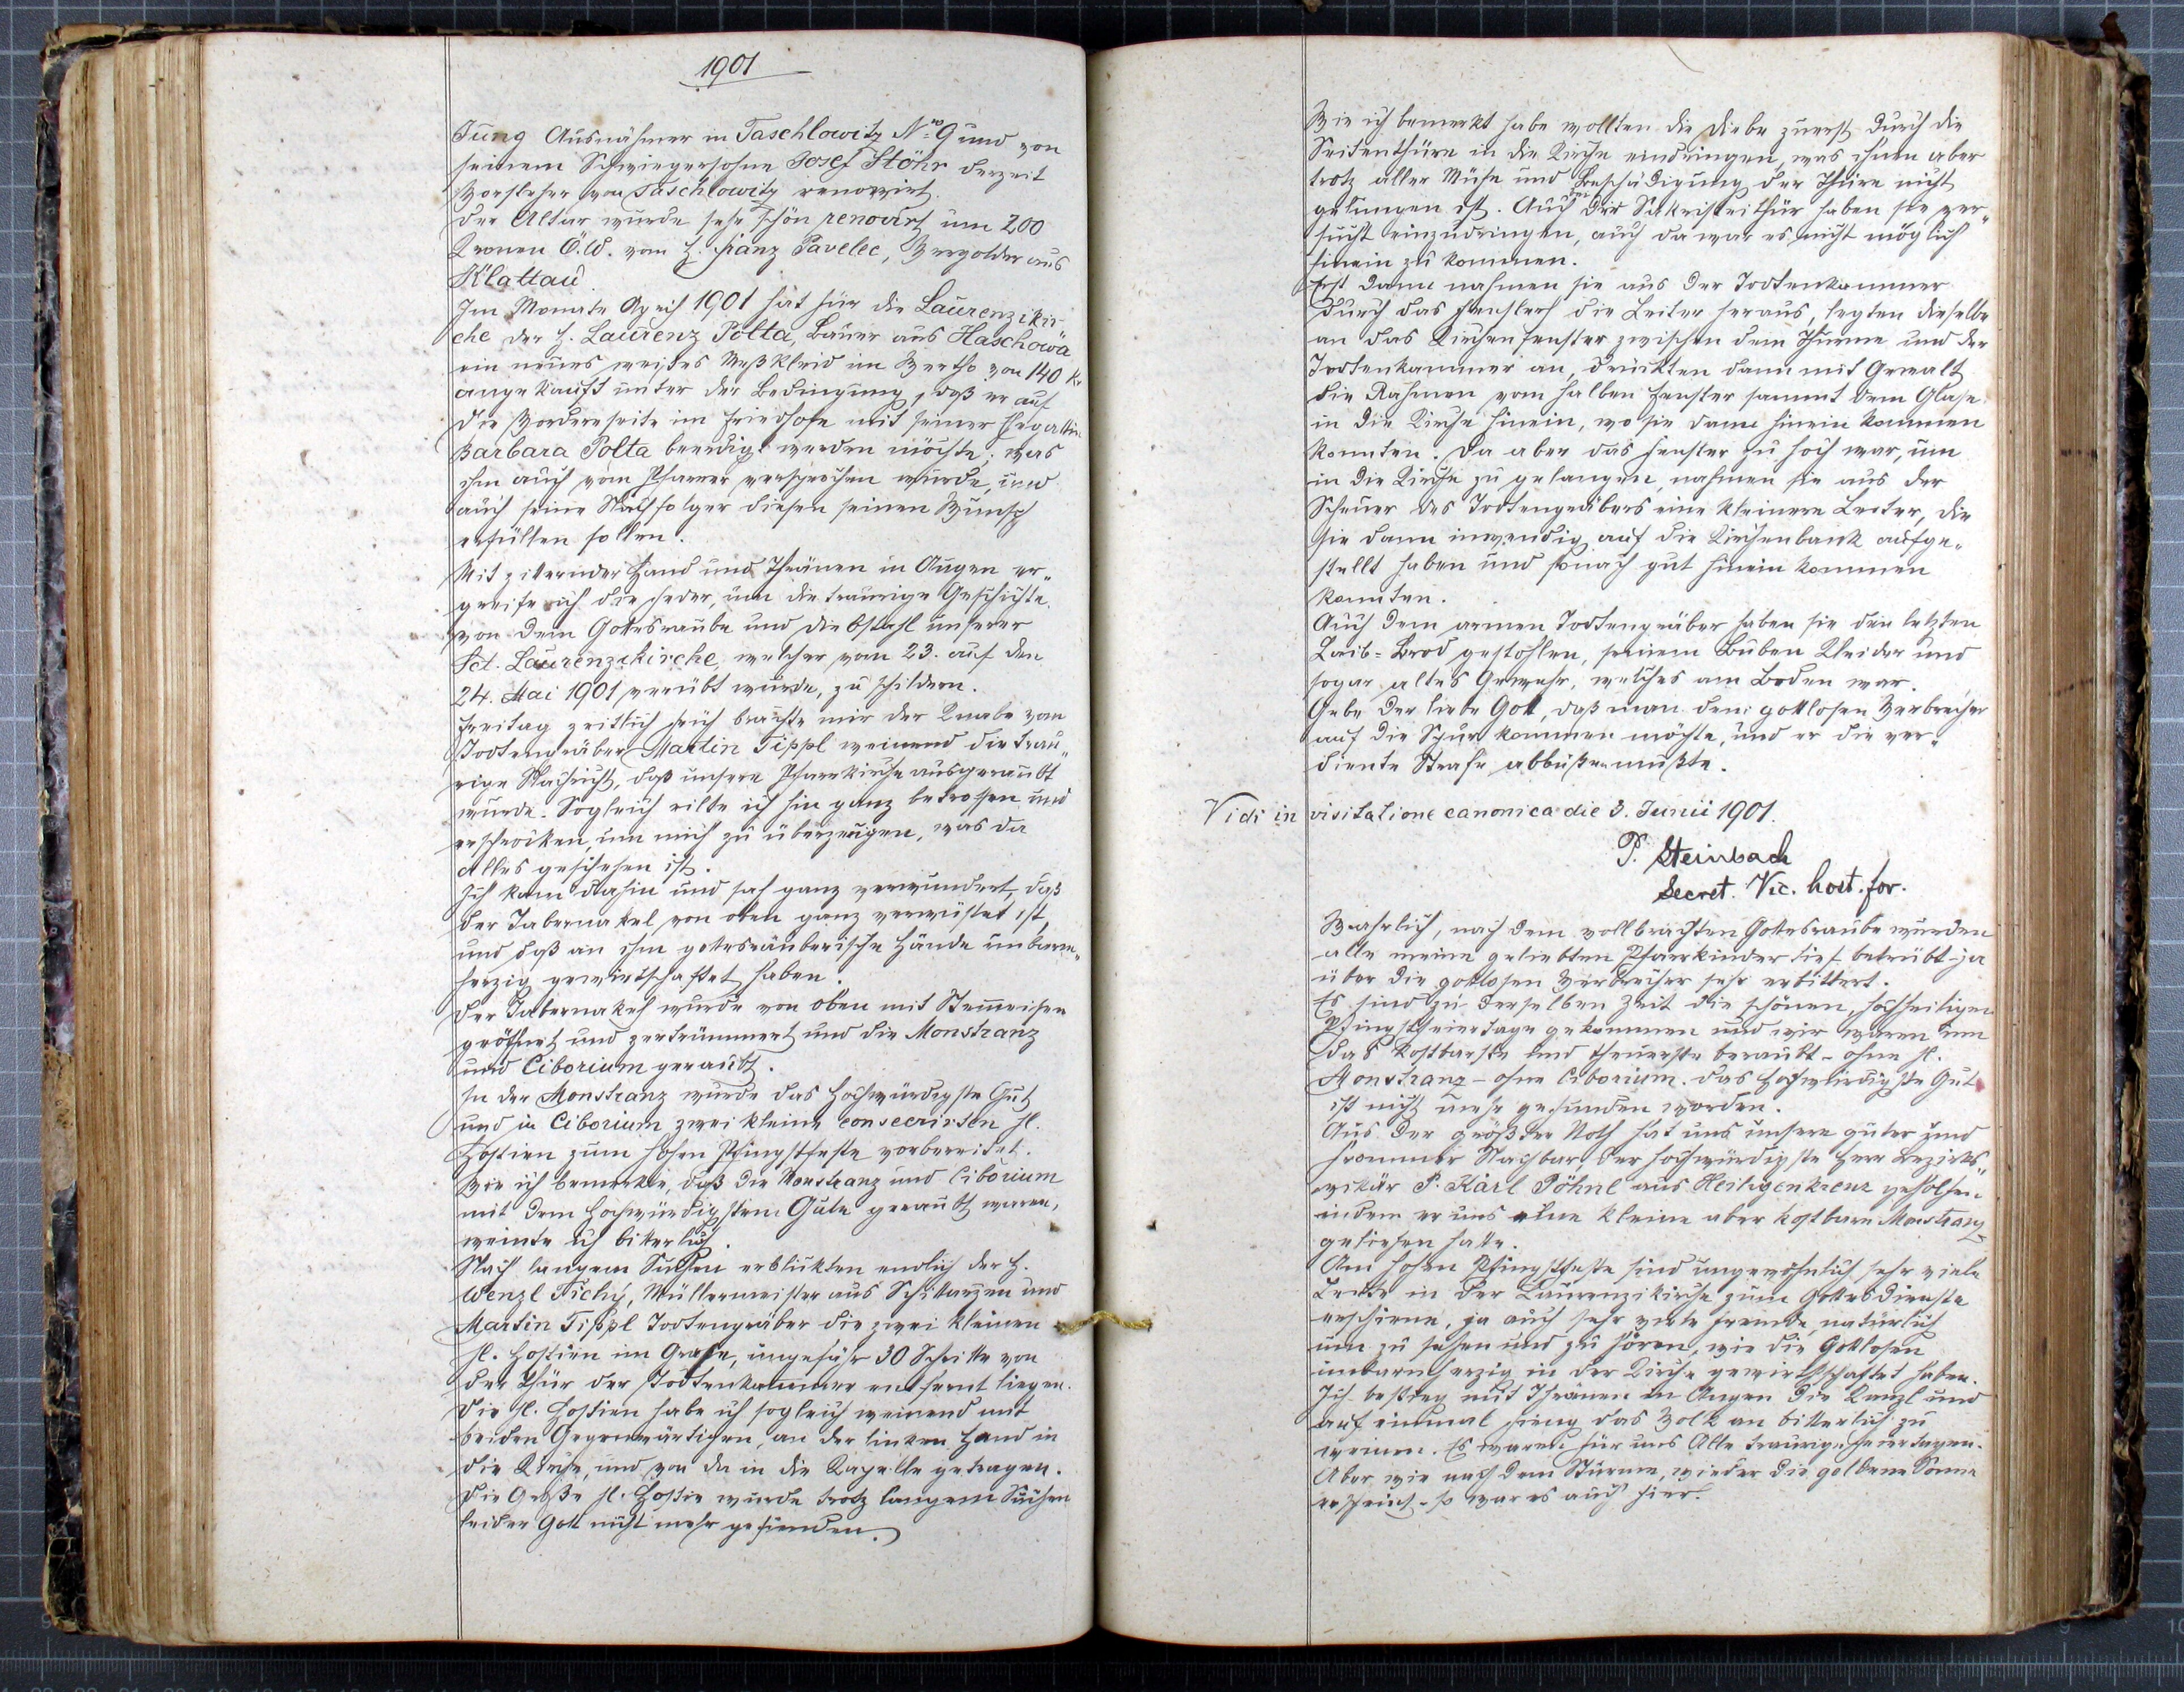 1901
Jung Ausnähmer in Taschlowitz No. 9 und von
seinem Schwiegersohne Josef Stöhr derzeit
Vorsteher von Taschlowitz renovirt.
Der Altar wurde sehr schön renovirt um 200
Kronen Ö.W. vom H. Franz Pavelec, Vergolder aus
Klattau.
Im Monate April 1901 hat für die Laurenzikir-
che der H. Laurenz Polta, Bauer aus Haschowa
ein neues weißes Meßkleid im Werthe von 140 Kr
angekauft unter der Bedingung, daß er auf
die Vorderseite im Friedhofe mit seiner Ehegattin
Barbara Polta beerdigt werden möchte; was
ihm auch vom Pfarrer versprochen wurde, und
auch seine Nachfolger diesen seinen Wunsch
erfüllen sollen.
Mit zitternder Hand und Thränen in Augen er„
greife ich die Feder, um die traurige Geschichte
von dem Gottesraube und Diebstahl unserer
Sct. Laurenzikirche, welcher vom 23. auf den
24. Mai 1901 verübt wurde, zu schildern.
Freitag zeitlich früh brachte mir der Knabe vom
Todtengräber Martin Tippl weinend die trau„
rige Nachricht, daß unsere Pfarrkirche ausgeraubt
wurde. Sogleich eilte ich hin ganz betroffen und
erschrocken, um mich zu überzeugen, was da
alles geschehen ist.
Ich kam dahin und sah ganz verwundert, daß
der Tabernakel von oben ganz verwüstet ist,
und daß an ihm gottesräuberische Hände unbarm„
herzig gewirtschaftet haben.
Der Tabernakel wurde von oben mit Stemeisen
geöffnet und zertrümmert und die Monstranz
und Ciborium geraubt.
In der Monstranz wurde das Hochwürdigste Gut
und in Ciborium zwei kleine consecrirten hl.
Hostien zum hohen Pfingstfeste vorbereitet.
Wie ich bemerkte, daß die Monstranz und Ciborium
mit dem Hochwürdigsten Gute geraubt waren,
weinte ich bitterlich.
Nach langem Suchen erblickten endlich der H.
Wenzl Tichý, Müllermeister aus Schittarzen und
Martin Tippl Todtengräber die zwei kleinen
hl. Hostien im Grase, ungefähr 30 Schritte von
der Thür der Todtenkammer entfernt liegen.
Die hl. Hostien habe ich sogleich weinend mit
beiden Gegenwärtigen, an der linken Hand in
die Kirche, und von da in die Kapelle getragen.
Die Große hl. Hostie wurde trotz langem Suchen
leider Gott nicht mehr gefunden.
Wie ich bemerkt habe wollten die Diebe zuerst durch die
Seitenthüre in die Kirche eindringen, was ihnen aber
trotz aller Mühe und Beschädigung der Thüre nicht
gelungen ist. Auch der Sakristeithür haben sie ver„
sucht einzudringen, auch da war es nicht möglich
hinein zu kommen.
Erst dann nahmen sie aus der Todtenkammer
durch das Fensterl die Leiter heraus, legten dieselbe
an das Kirchenfenster zwischen dem Thurme und der
Todtenkammer an, drückten dann mit Gewalt
die Rahmen vom halben Fenster sammt dem Glase
in die Kirche hinein, wo sie dann hinein kommen
konnten. Da aber das Fenster zu hoch war, um
in die Kirche zu gelangen, nahmen sie aus der
Scheuer des Todtengräbers eine kleinere Leiter, die
sie dann inwendig auf die Kirchenbank aufge„
stellt haben und sonach gut hinein kommen
konnten.
Auch dem armen Todtengräber haben sie den letzten
Laib-Brod gestohlen, seinem Buben Kleider und
sogar altes Gewehr, welches am Boden war.
Gebe der liebe Gott, daß man dem gottlosen Verbrecher
auf die Spur kommen möchte, und er die ver„
diente Strafe abbüßen müßte.
Vidi in visitatione canonica die 3. Junii 1901.
P. Steinbach
Secret. Vic. host. for.
Wahrlich, nach dem vollbrachten Gottesraube wurden
alle meine geliebten Pfarrkinder tief betrübt - ja
über die gottlosen Verbrecher sehr erbittert.
Es sind zu derselben Zeit die schönen hochheiligen
Pfingstfeiertage gekommen und wir waren um
das Kostbarste und theuerste beraubt - ohne hl.
Monstranz - ohne Ciborium. Das Hochwürdigste Gut
ist nicht mehr gefunden worden.
Aus der größten Noth hat uns unsere guter und
frommer Nachbar, der hochwürdigste Herr Bezirks„
vikär P. Karl Pöhnl aus Heiligenkreuz geholfen
indem er uns eine kleine aber kostbare Monstranz
geliehen hatte.
Am hohen Pfingstfeste sind ungewöhnlich sehr viele
Leute in der Laurenzikirche zum Gottesdienste
erschienen, ja auch sehr viele Fremde, natürlich
um zu sehen und zu hören, wie die Gottlosen
unbarmherzig in der Kirche gewirthschaftet haben.
Ich bestieg mit Thränen in Augen die Kanzl und
auf einmal fieng das Volk an bitterlich zu
weinen. Es waren für uns Alle traurige Feiertagen.
Aber wie nach dem Sturme, wieder die goldene Sonne
erscheint - so war es auch hier.